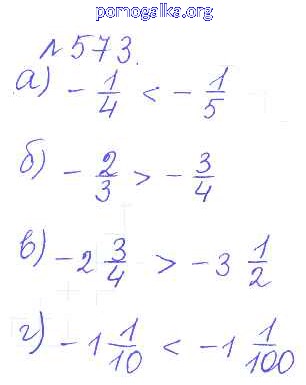 pomogalka.org
№573.
а) -1/4 < -1/5
б) -2/3 > -3/4
в) -2 3/4 > -3 1/2
г) -1 1/10 < -1 1/100